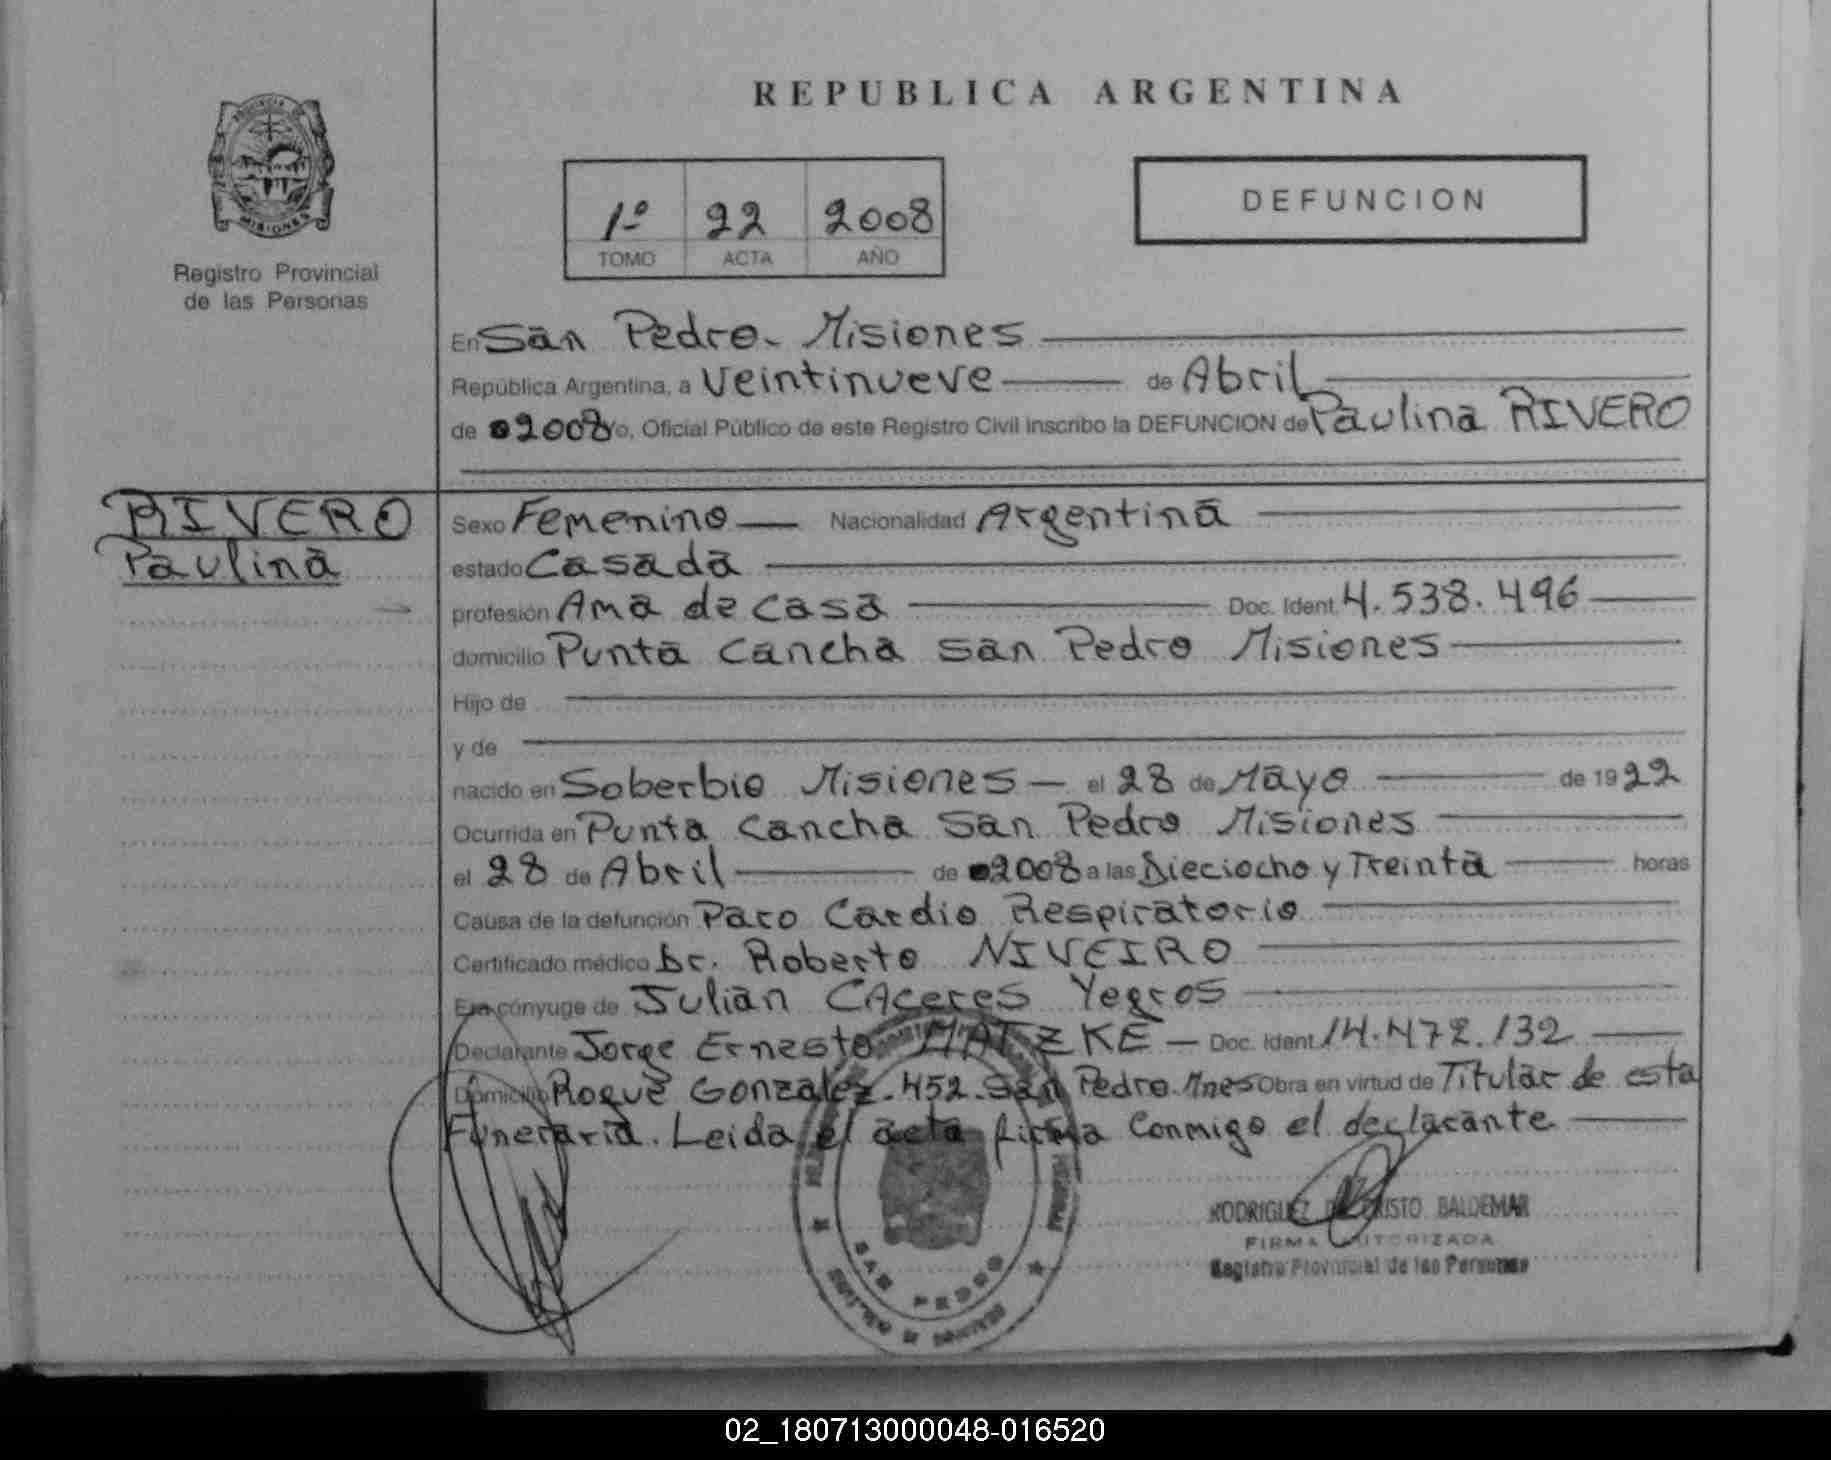 REPUBLICA ARGENTINA
PROVINCIA DE
MISIONES
Registro Provincial
de las Personas
1º 22 2008
TOMO ACTA AÑO
DEFUNCION
En San Pedro - Misiones
República Argentina, a Veintinueve de Abril
de 2008 Yo, Oficial Público de este Registro Civil inscribo la DEFUNCION de Paulina RIVERO
RIVERO
Paulina
Sexo Femenino Nacionalidad Argentina
estado Casada
profesión Ama de casa Doc. Ident. 4.538.496
domicilio Punta Cancha San Pedro Misiones
Hijo de
y de
nacido en Soberbio Misiones el 28 de Mayo de 1922
Ocurrida en Punta Cancha San Pedro Misiones
el 28 de Abril de 2008 a las Dieciocho y Treinta horas
Causa de la defunción Paro Cardio Respiratorio
Certificado médico Dr. Roberto NIVEIRO
Era cónyuge de Julian CAceres Yegros
Declarante Jorge Ernesto MATZKE Doc. Ident. 14.472.132
Domicilio Roque Gonzalez - 452 - San Pedro - Mnes Obra en virtud de Titular de esta
Funeraria. Leida el acta firma Conmigo el declarante
RODRIGUEZ CRISTO BALDEMAR
FIRMA AUTORIZADA
Registro Provincial de las Personas
SAN PEDRO
02_180713000048-016520